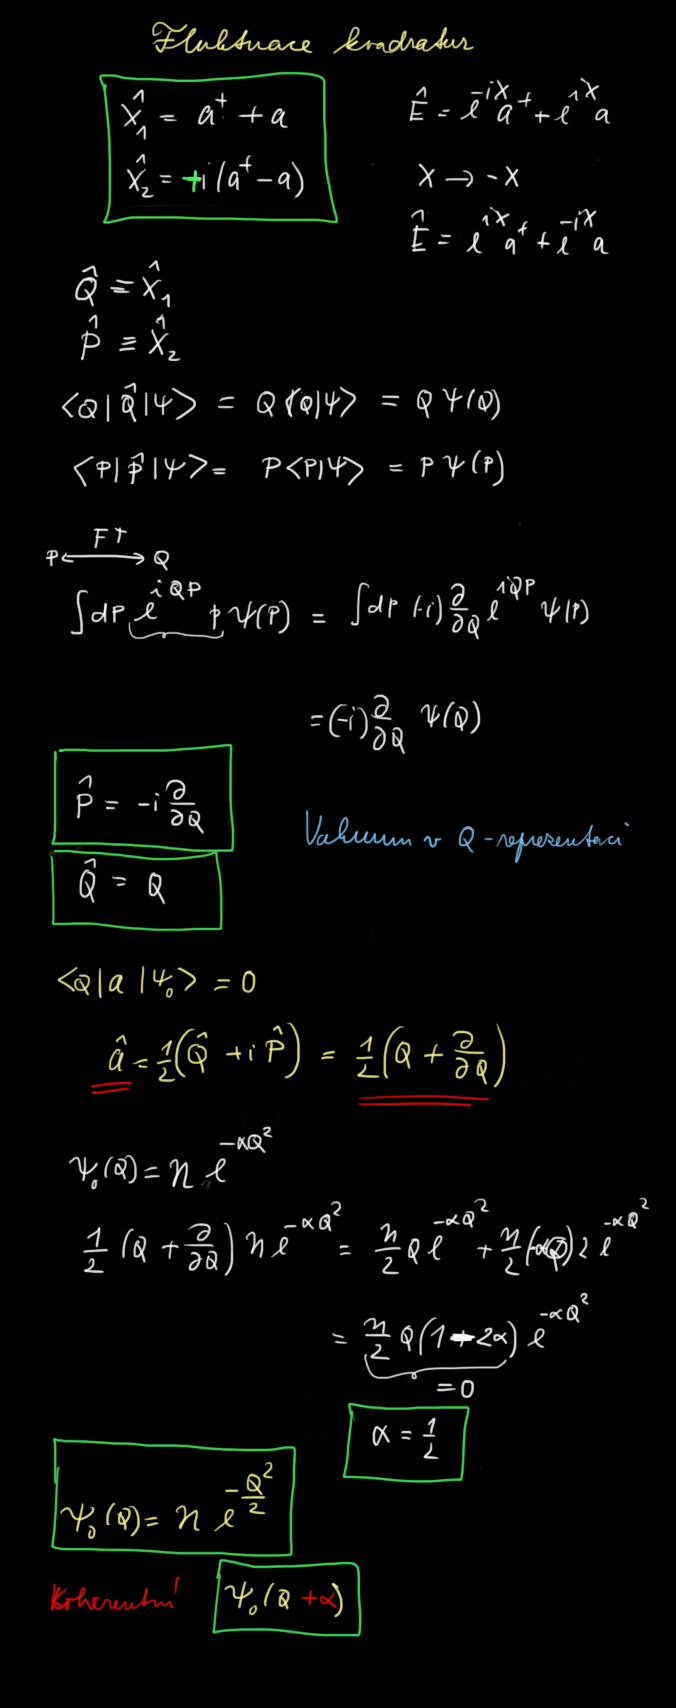 Fluktuace kvadratur
X̂₁ = a⁺ + a
X̂₂ = +i(a⁺ - a)
Ê = e^{-iX} a⁺ + e^{iX} a
X → -X
Ê = e^{iX} a⁺ + e^{-iX} a
Q̂ ≡ X̂₁
P̂ ≡ X̂₂
<Q|Q̂|Ψ> = Q<Q|Ψ> = Q Ψ(Q)
<P|P̂|Ψ> = P<P|Ψ> = P Ψ(P)
P ←FT→ Q
∫dP e^{iQP} P Ψ(P) = ∫dP (-i) ∂/∂Q e^{iQP} Ψ(P)
= (-i) ∂/∂Q Ψ(Q)
P̂ = -i ∂/∂Q
Vakuum v Q-reprezentaci
Q̂ = Q
<Q|a|Ψ₀> = 0
â = 1/2 (Q̂ + i P̂) = 1/2 (Q + ∂/∂Q)
Ψ₀(Q) = n e^{-αQ²}
1/2 (Q + ∂/∂Q) n e^{-αQ²} = n/2 Q e^{-αQ²} + n/2 (-αQ) 2 e^{-αQ²}
= n/2 Q (1 - 2α) e^{-αQ²}
= 0
α = 1/2
Ψ₀(Q) = n e^{-Q²/2}
Koherentní Ψ₀(Q + α)